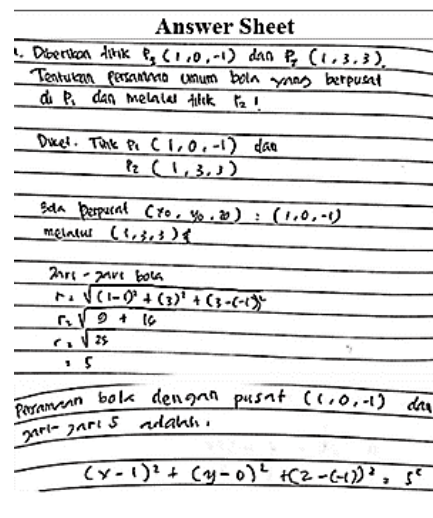 Answer Sheet
1. Diberikan titik P₁ (1,0,-1) dan P₂ (1,3,3).
Tentukan persamaan umum bola yang berpusat
di P₁ dan melalui titik P₂ !
Diket. Titik P₁ (1,0,-1) dan
P₂ (1,3,3)
Bola berpusat (x₀, y₀, z₀) : (1,0,-1)
melalui (1,3,3)
Jari-jari bola
r = √(1-1)² + (3)² + (3-(-1))²
r = √9 + 16
r = √25
= 5
Persamaan bola dengan pusat (1,0,-1) dan
jari-jari 5 adalah.
(x-1)² + (y-0)² + (z-(-1))² = 5²